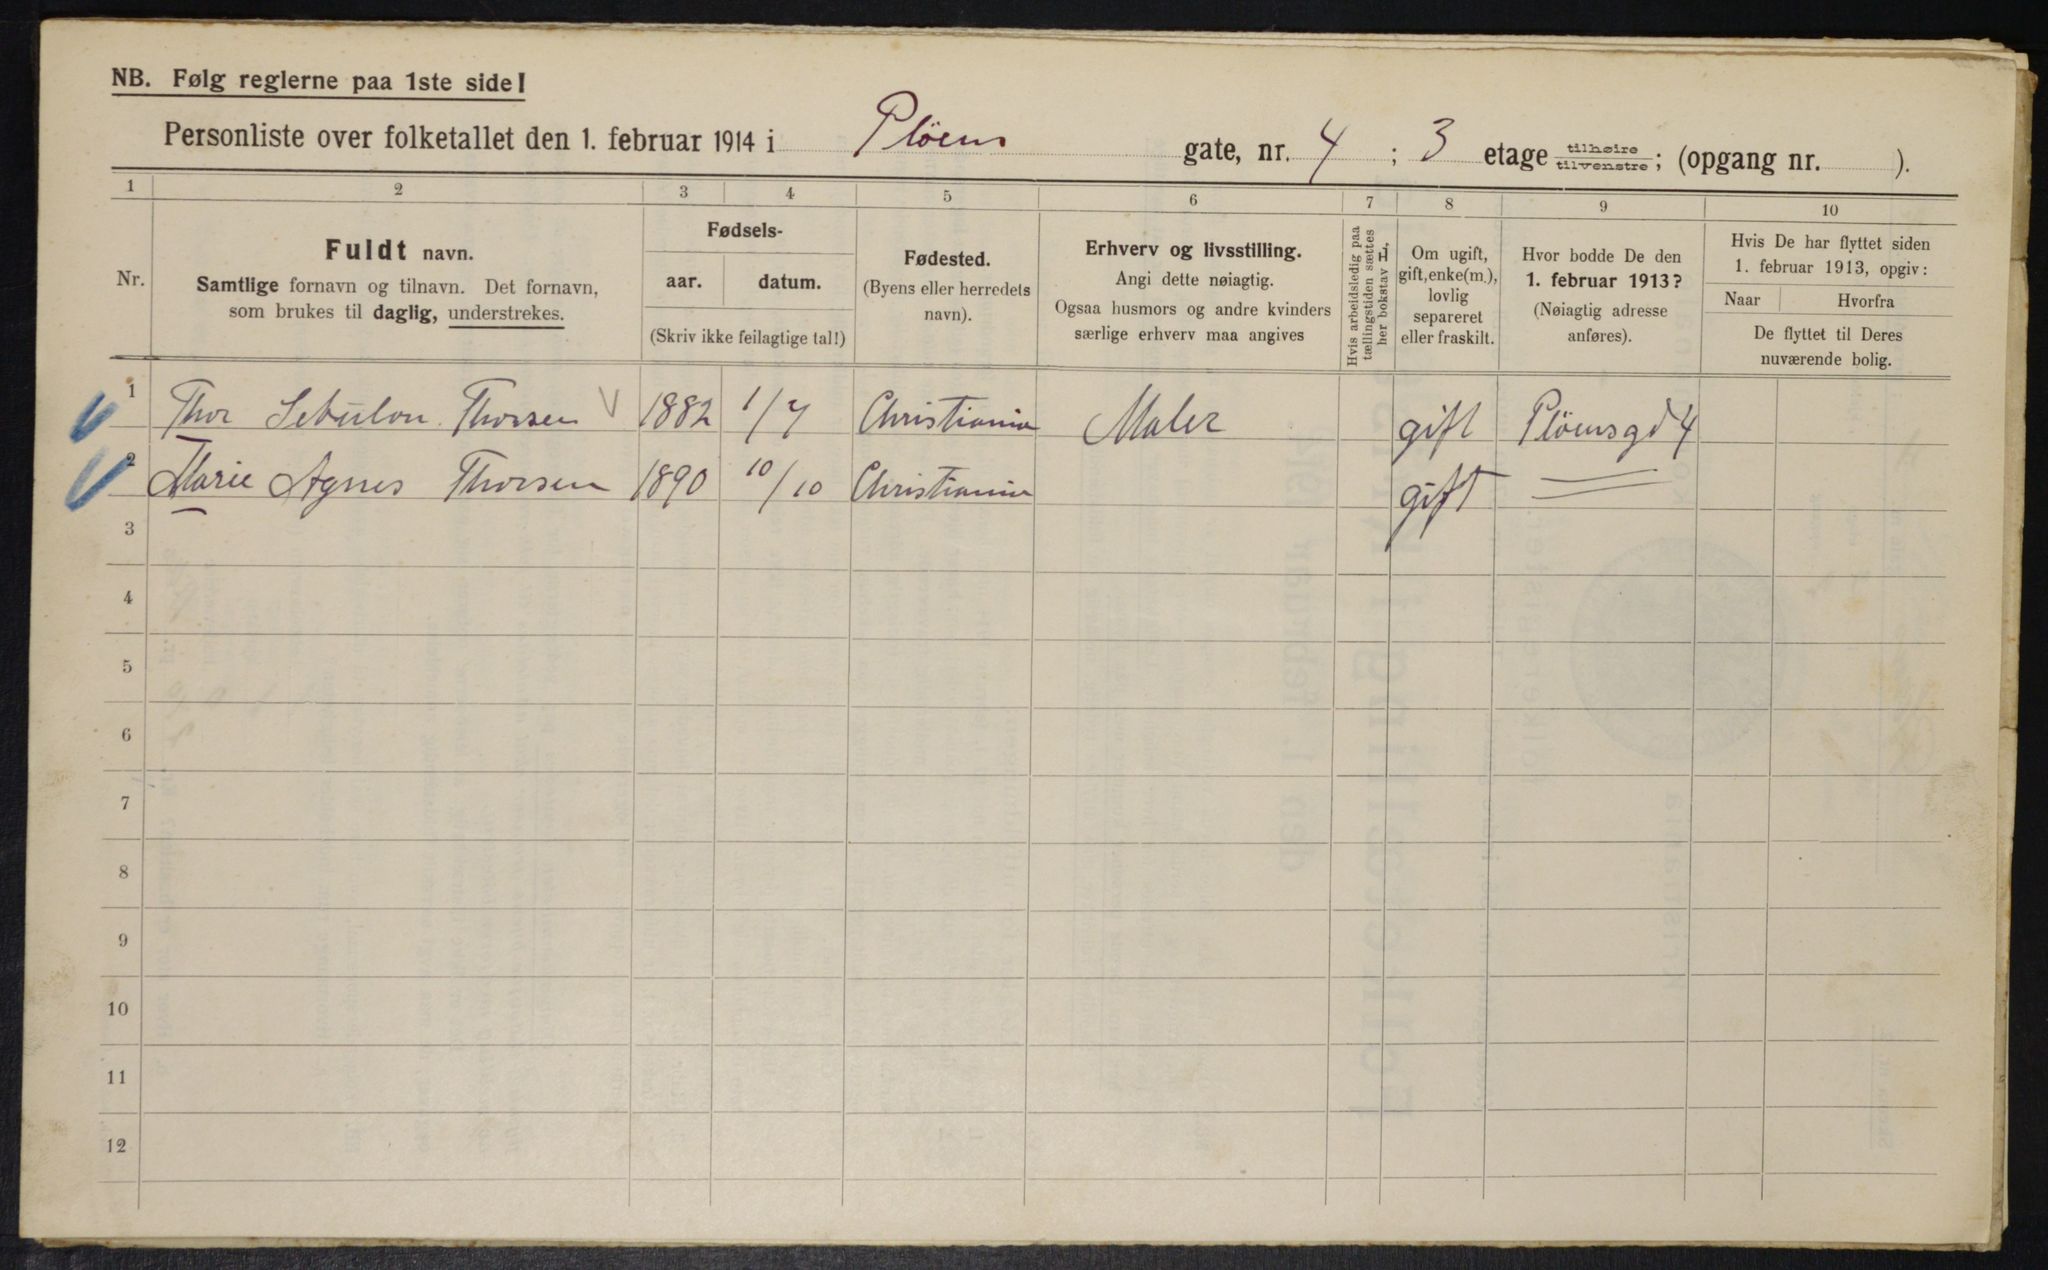 NB. Følg reglerne paa 1ste side!
Personliste over folketallet den 1. februar 1914 i Plöens gate, nr. 4 ; 3 etage tilhøire tilvenstre; (opgang nr. ).
1 2 3 4 5 6 7 8 9 10
Nr.
Fuldt navn.
Samtlige fornavn og tilnavn. Det fornavn,
som brukes til daglig, understrekes.
Fødsels-
aar. datum.
(Skriv ikke feilagtige tal!)
Fødested.
(Byens eller herredets
navn).
Erhverv og livsstilling.
Angi dette nøiagtig.
Ogsaa husmors og andre kvinders
særlige erhverv maa angives
Hvis arbeidsledig paa
tællingstiden sættes
her bokstav L,
Om ugift,
gift, enke(m.),
lovlig
separeret
eller fraskilt.
Hvor bodde De den
1. februar 1913?
(Nøiagtig adresse
anføres).
Hvis De har flyttet siden
1. februar 1913, opgiv:
Naar Hvorfra
De flyttet til Deres
nuværende bolig.
1 Thor Sebulon Thorsen 1882 1/7 Christiania Maler gift Plöensgd 4
2 Marie Agnes Thorsen 1890 10/10 Christiania gift
3
4
5
6
7
8
9
10
11
12